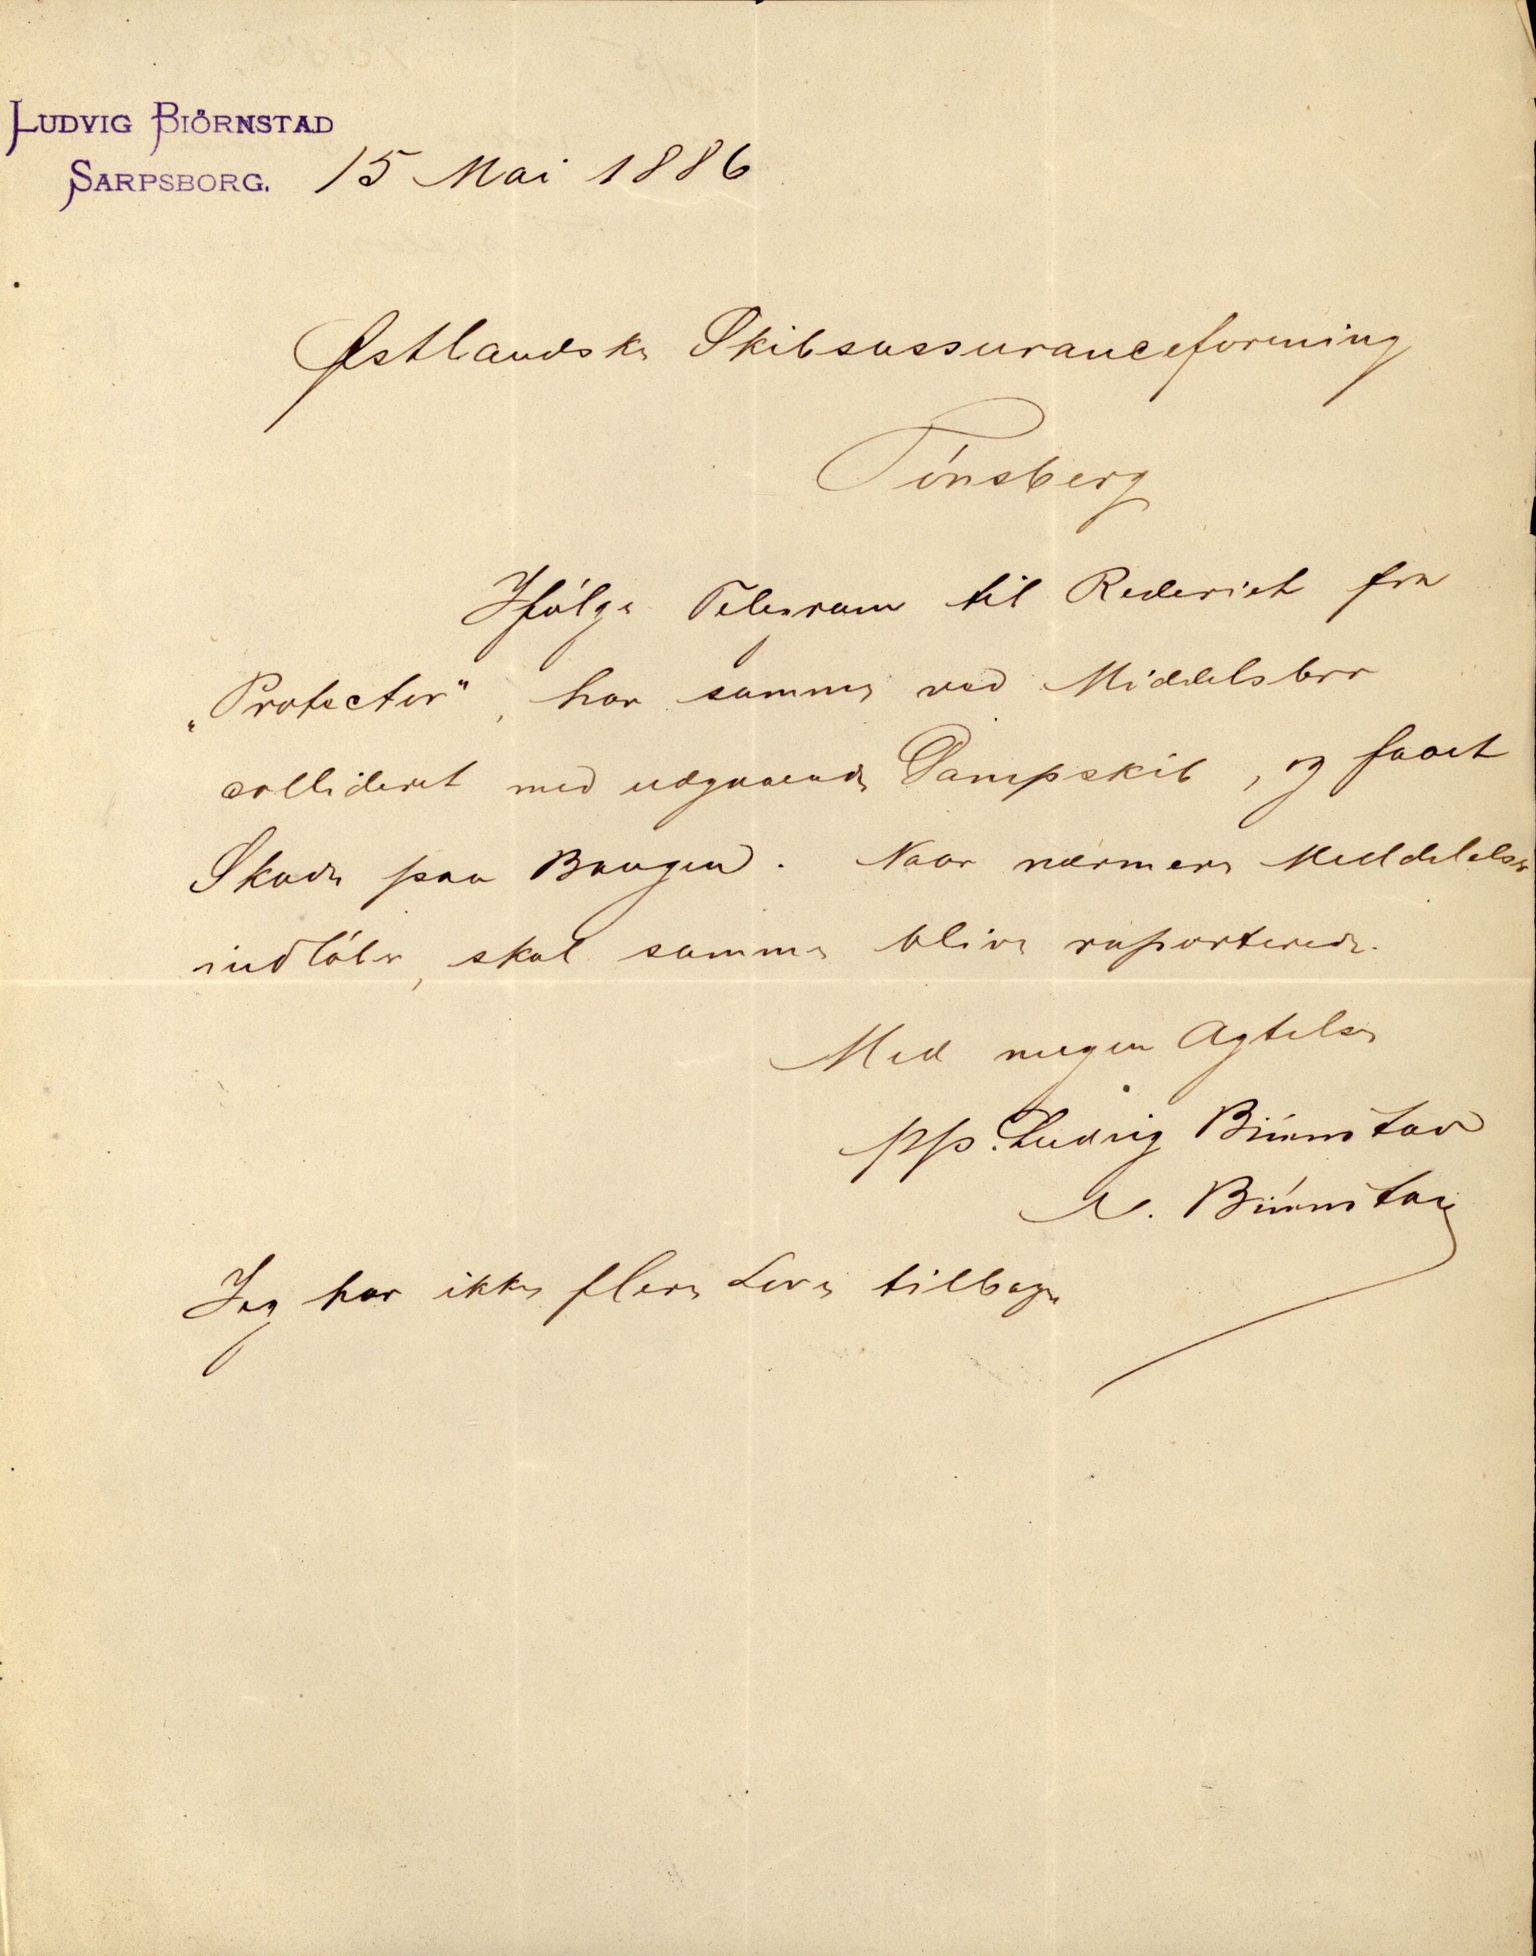 LUDVIG BIÖRNSTAD
SARPSBORG. 15 Mai 1886
Østlandske Skibsassuranceforening
Tónsberg
Ifólge Telegram til Rederiet fra
„Protector“, har samme ved Middelsbro
collideret med udgaaende Dampskib, og faaet
Skade paa Bougen. Naar nærmere Meddelelse
indlóber, skal samme blive raporterede.
Med megen Agtelse
pp. Ludvig Biórnstad
N. Biórnstad
Jeg har ikke flere Love tilbage